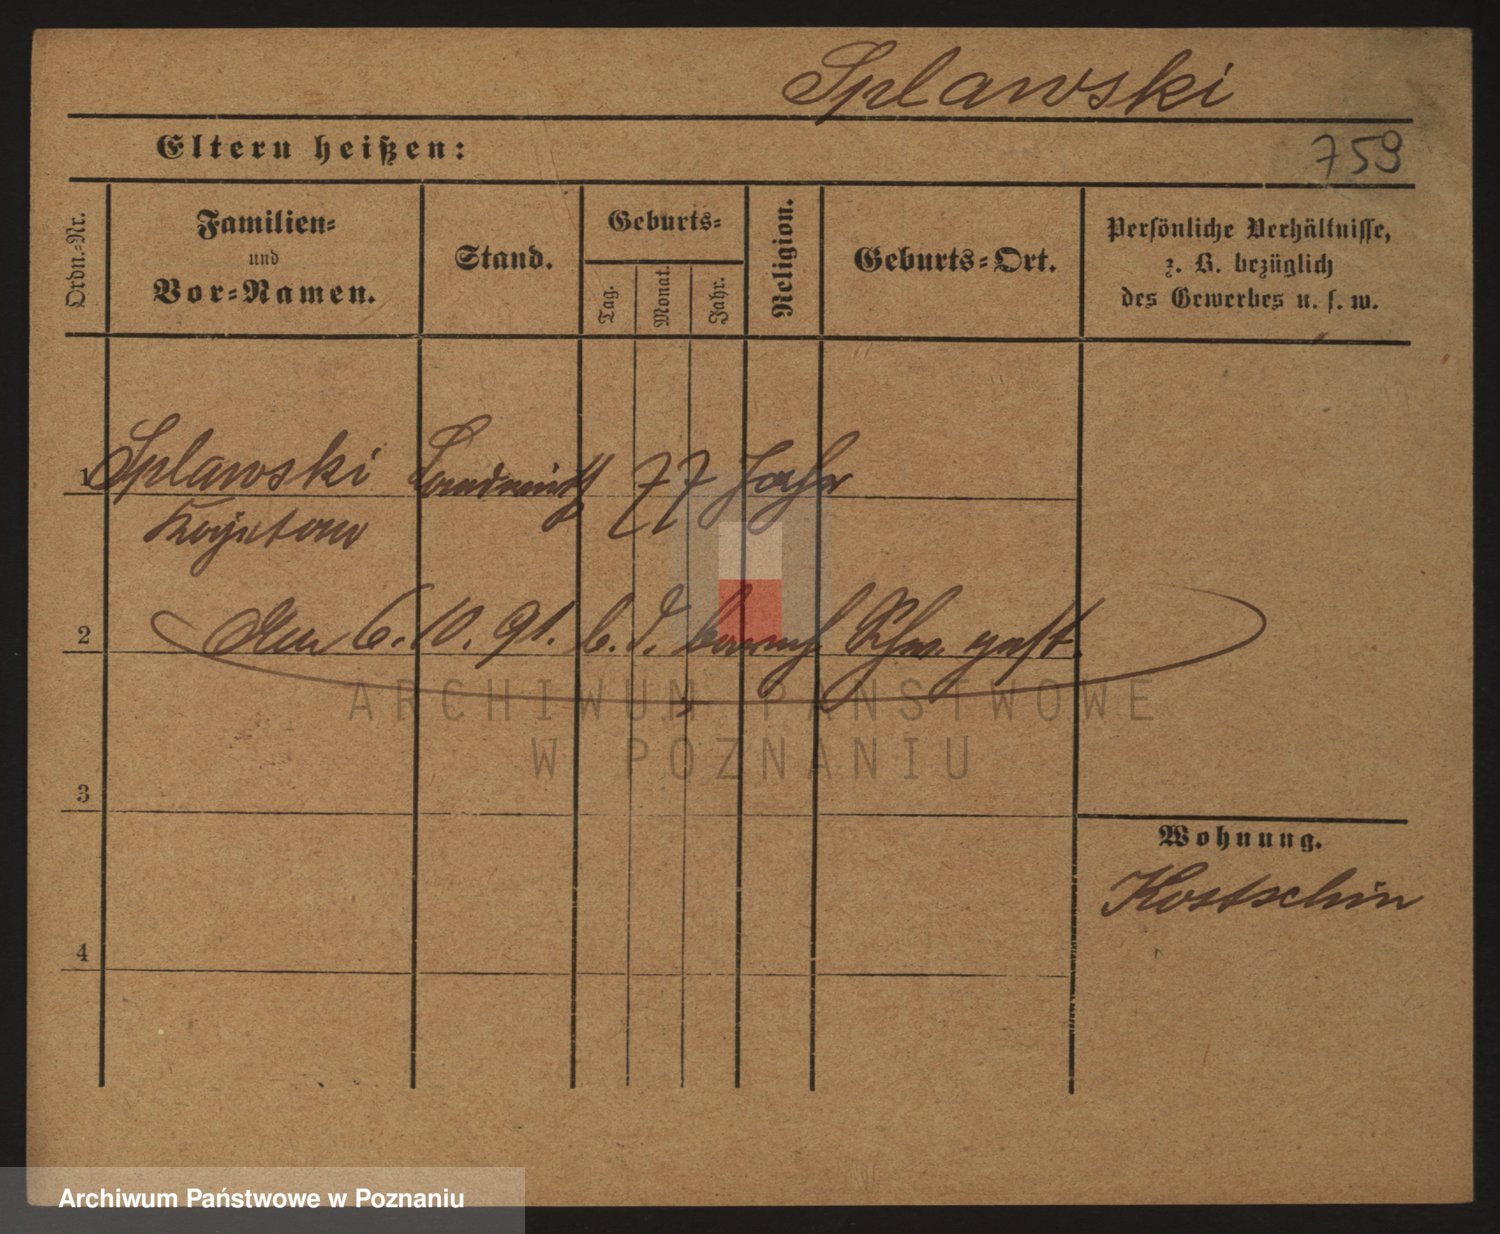 Splawski
Eltern heißen:
759
Ordn.-Nr.
Familien-
und
Vor-Namen.
Stand.
Geburts-
Tag.
Monat.
Jahr.
Religion.
Geburts-Ort.
Persönliche Verhältnisse,
z. B. bezüglich
des Gewerbes u. s. w.
1 Splawski Landwirth 77 Jahr
Kajetan
2 den 6. 10. 91. b. d. barmh. Schw. gest.
ARCHIWUM PAŃSTWOWE
W POZNANIU
3
Wohnung.
Kostschin
4
Archiwum Państwowe w Poznaniu